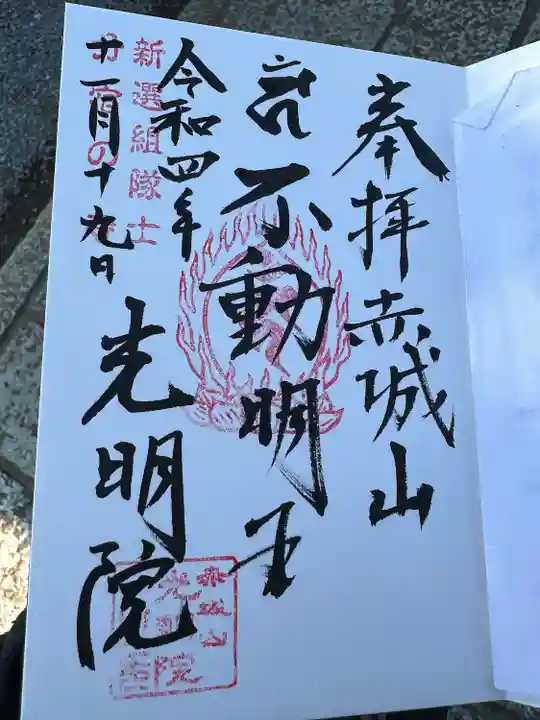 奉拝 赤城山
不動明王
令和四年
十一月十九日
光明院
新選組隊士
赤城山
院